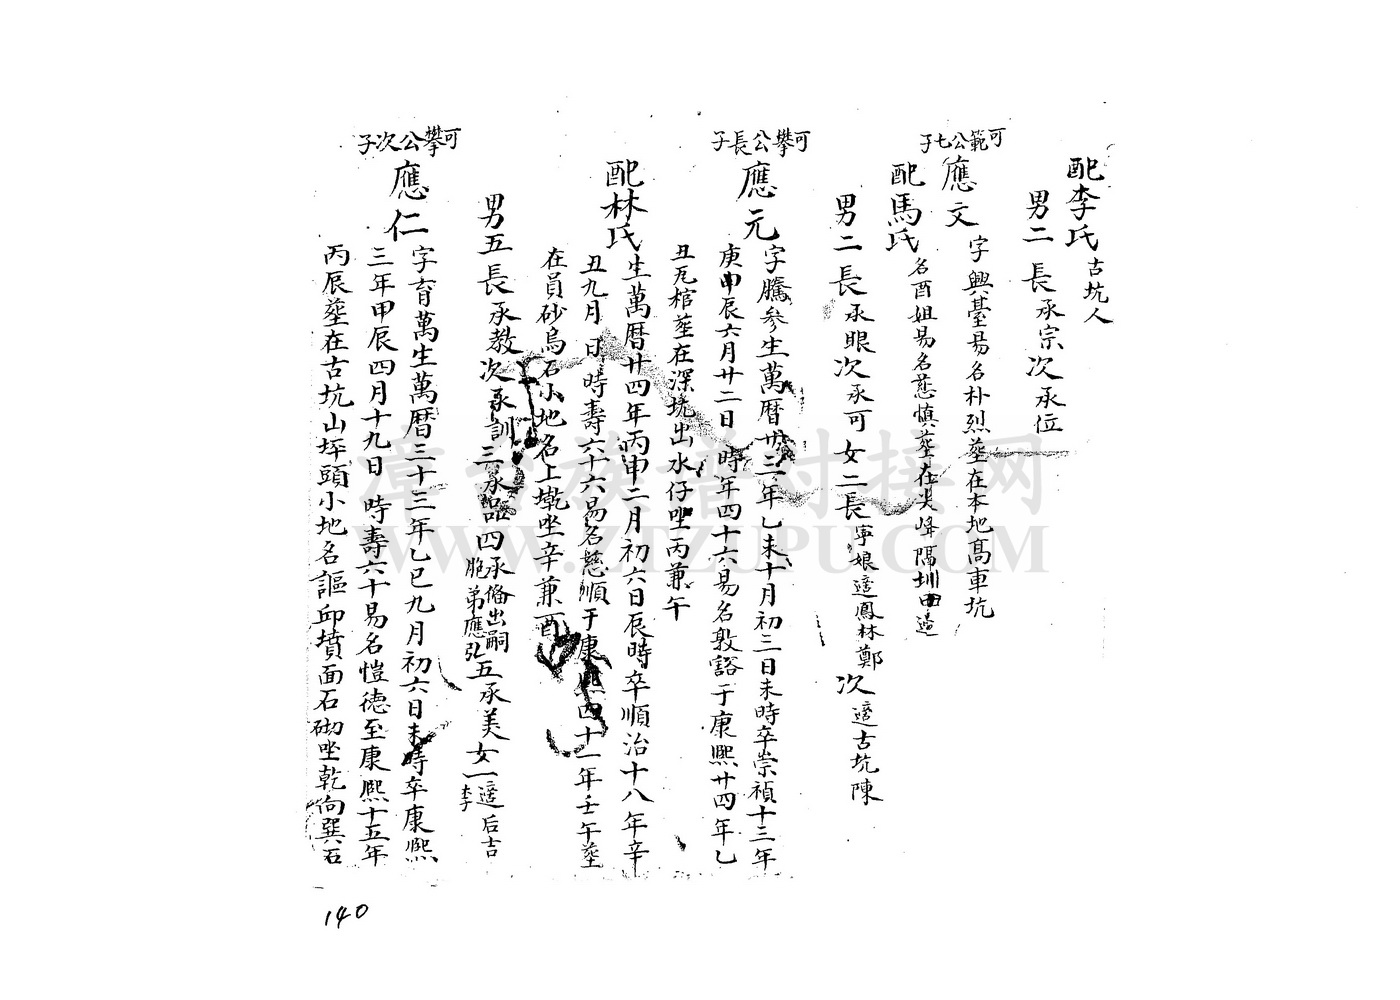 配李氏古坑人
男二長承宗次承位
可範公七子
應文字興臺易名朴烈塟在本地高車坑
配馬氏名酉姐易名慈慎塟在尖峰隔圳田邉
男二長承眼次承可女二長寧娘適鳳林鄭次適古坑陳
可攀公長子
應元字騰參生萬曆廿三年乙未十月初三日未時卒崇禎十三年
庚申辰六月廿二日時年四十六易名敦谿于康熙廿四年乙
丑瓦棺塟在深坑出水仔坐丙兼午
配林氏生萬曆廿四年丙申二月初六日辰時卒順治十八年辛
丑九月日時壽六十六易名慈順于康熙四十一年壬午塟
在員砂烏石小地名上墘坐辛兼酉
男五長承教次承訓三承品四承俻出嗣胞弟應弘五承美女一適后吉李
可攀公次子
應仁字育萬生萬曆三十三年乙巳九月初六日未時卒康熙
三年甲辰四月十九日時壽六十易名愷德至康熙十五年
丙辰塟在古坑山坪頭小地名謳邱墳面石砌坐乾向巽石
140
漳台族譜对接网
WWW.ZTZUPU.COM